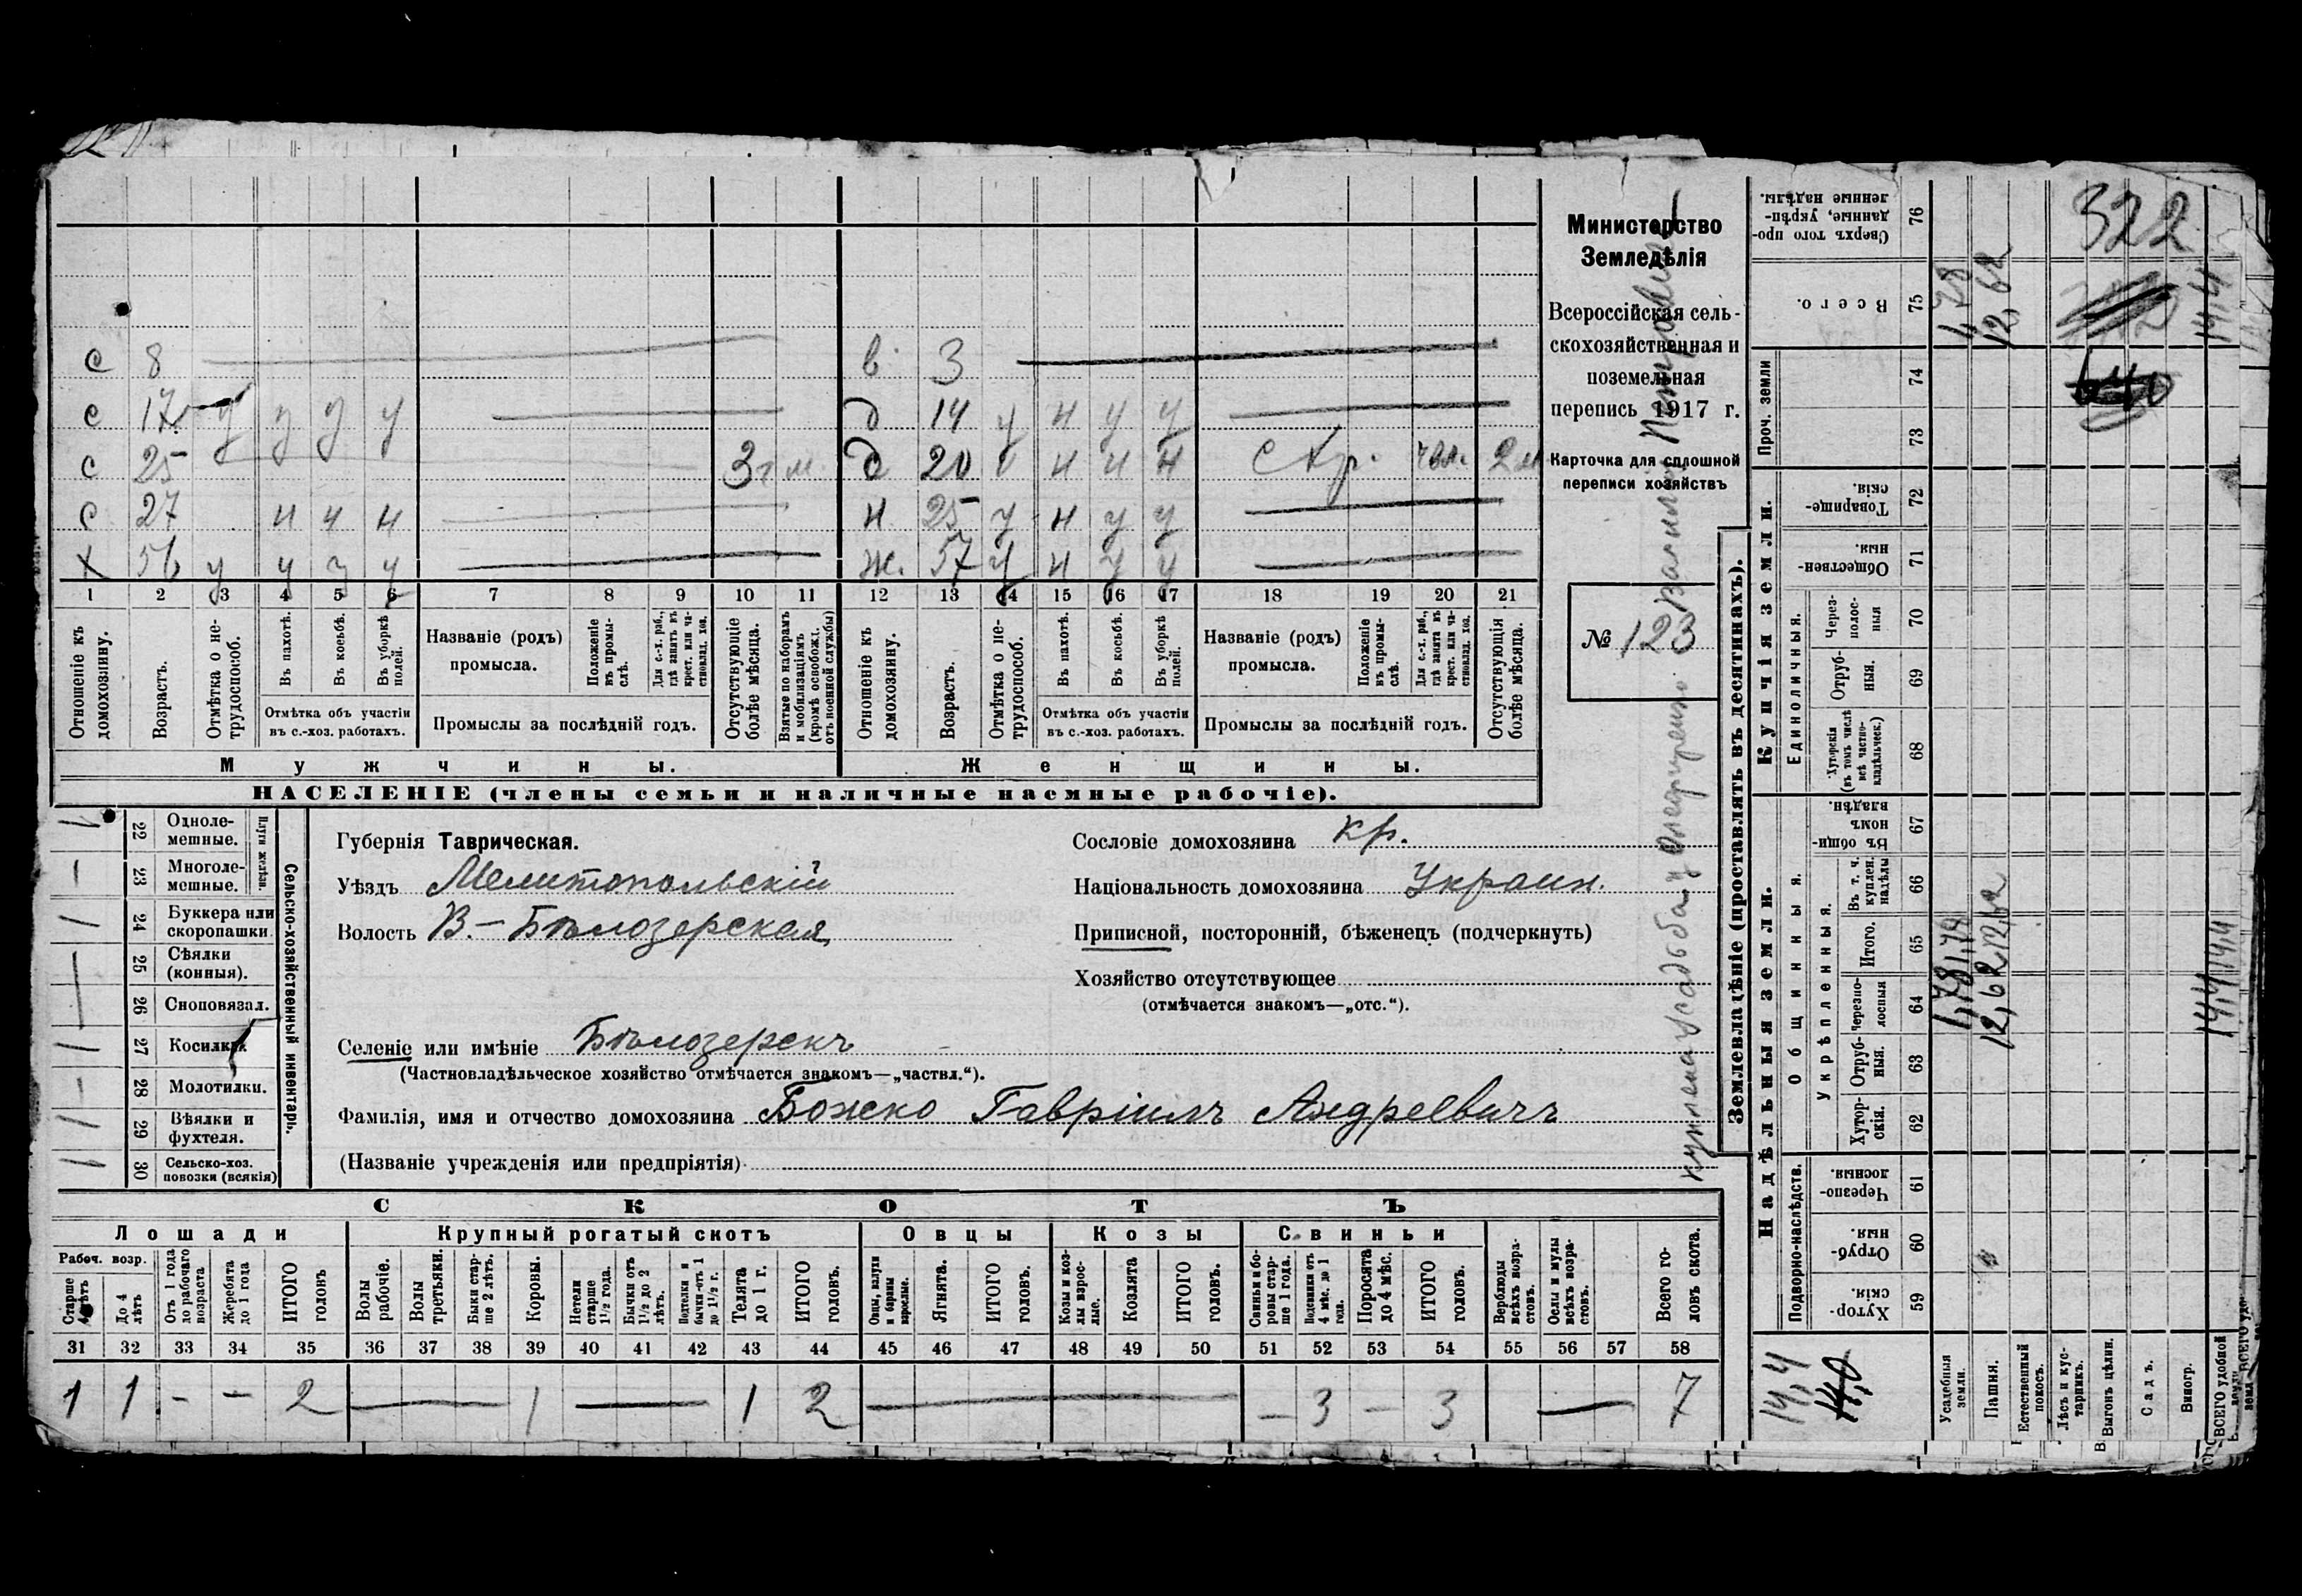 С 8 в 3
С 17 у у у у д 14 у н у у
С 25 3 г м. д 20 н н н 2 м
С 27 н ч н н 25 у н у у
Х 56 у у у у ж. 57 у н у у
1 2 3 4 5 6 7 8 9 10 11 12 13 14 15 16 17 18 19 20 21
Отношеніе къ домохозяину.
Возрастъ.
Отмѣтка о не-трудоспособ.
Въ пахотѣ.
Въ косьбѣ.
Въ уборкѣ полей.
Отмѣтка объ участіи въ с.-хоз. работахъ.
Названіе (родъ) промысла.
Положеніе въ промы-слѣ.
Для с.-х. раб., гдѣ занятъ въ крест. или ча-стновлад. хоз.
Промыслы за послѣдній годъ.
Отсутствующіе болѣе мѣсяца.
Взятые по наборамъ и мобилизаціямъ (кромѣ освобожд. отъ военной службы)
Отношеніе къ домохозяину.
Возрастъ.
Отмѣтка о не-трудоспособ.
Въ пахотѣ.
Въ косьбѣ.
Въ уборкѣ полей.
Отмѣтка объ участіи въ с.-хоз. работахъ.
Названіе (родъ) промысла.
Положеніе въ промы-слѣ.
Для с.-х. раб., гдѣ занята въ крест. или ча-стновлад. хоз.
Промыслы за послѣдній годъ.
Отсутствующія болѣе мѣсяца.
Мужчины. Женщины.
НАСЕЛЕНІЕ (члены семьи и наличные наемные рабочіе).
Министерство
Земледѣлія
Всероссійская сель-
скохозяйственная и
поземельная
перепись 1917 г.
Карточка для сплошной
переписи хозяйствъ
№ 123
куплена усадьба у
Сельско-хозяйственный инвентарь.
Плуги желѣзн.
22 Одноле-мешные.
23 Многоле-мешные.
24 Буккера или скоропашки
25 Сѣялки (конныя).
26 Сноповязал.
27 Косилки
28 Молотилки.
29 Вѣялки и фухтеля.
30 Сельско-хоз. повозки (всякія)
Губернія Таврическая.
Уѣздъ Мелитопольскій
Волость В.-Бѣлозерская
Сословіе домохозяина кр.
Національность домохозяина Украин.
Приписной, посторонній, бѣженецъ (подчеркнуть)
Хозяйство отсутствующее
(отмѣчается знакомъ—„отс.“).
Селеніе или имѣніе Бѣлозерскъ
(Частновладѣльческое хозяйство отмѣчается знакомъ—„частвл.“).
Фамилія, имя и отчество домохозяина Божко Гавріилъ Андреевичъ
(Названіе учрежденія или предпріятія)
СКОТЪ
Лошади Крупный рогатый скотъ Овцы Козы Свиньи
Рабоч. возр.
Старше 4 лѣтъ
До 4 лѣтъ
Отъ 1 года до рабочаго возраста
Жеребята до 1 года
ИТОГО головъ
Волы рабочіе.
Волы третьяки.
Быки стар-ше 2 лѣтъ.
Коровы.
Нетели старше 1½ года.
Бычки отъ 1½ до 2 лѣтъ.
Подтелки и бычки отъ 1 до 1½ г.
Телята до 1 г.
ИТОГО головъ.
Овцы, валухи и бараны взрослые.
Ягнята.
ИТОГО головъ.
Козы и коз-лы взрос-лые.
Козлята
ИТОГО головъ.
Свиньи и бо-ровы стар-ше 1 года.
Подсвинки отъ 4 мѣс. до 1 года.
Поросята до 4 мѣс.
ИТОГО головъ.
Верблюды всѣхъ возра-стовъ.
Ослы и мулы всѣхъ возра-стовъ.
Всего го-ловъ скота.
31 32 33 34 35 36 37 38 39 40 41 42 43 44 45 46 47 48 49 50 51 52 53 54 55 56 57 58
1 1 - - 2 — 1 — 1 2 — — 3 — 3 — 7
Землевладѣніе (проставлять въ десятинахъ).
Надѣльныя земли. Купчія земли.
Подворно-наслѣдств.
Общинныя.
Укрѣпленныя.
Единоличныя.
Проч. земли
Хутор-скія. 59
Отруб-ныя. 60
Черезпо-лосныя. 61
Хутор-скія. 62
Отруб-ныя. 63
Черезпо-лосныя 64
Итого. 65
Въ т. ч. куплен. надѣлы 66
Въ общин-номъ владѣн. 67
Хуторскія (въ томъ числѣ всѣ частно-владѣльческ.) 68
Отруб-ныя. 69
Через-полос-ныя 70
Обществен-ныя. 71
Товарище-скія. 72
73
74
Всего. 75
Сверхъ того про-данные, укрѣп-ленные надѣлы. 76
Усадебная земля. 1,78 1,78 1,78
Пашня. 12,62 12,62 12,62
Естественный покосъ.
Лѣсъ и кус-тарникъ.
Выгонъ цѣлин.
Садъ.
Виногр.
ВСЕГО удобной 14,4 14,4 14,4
14,4
14,0
322